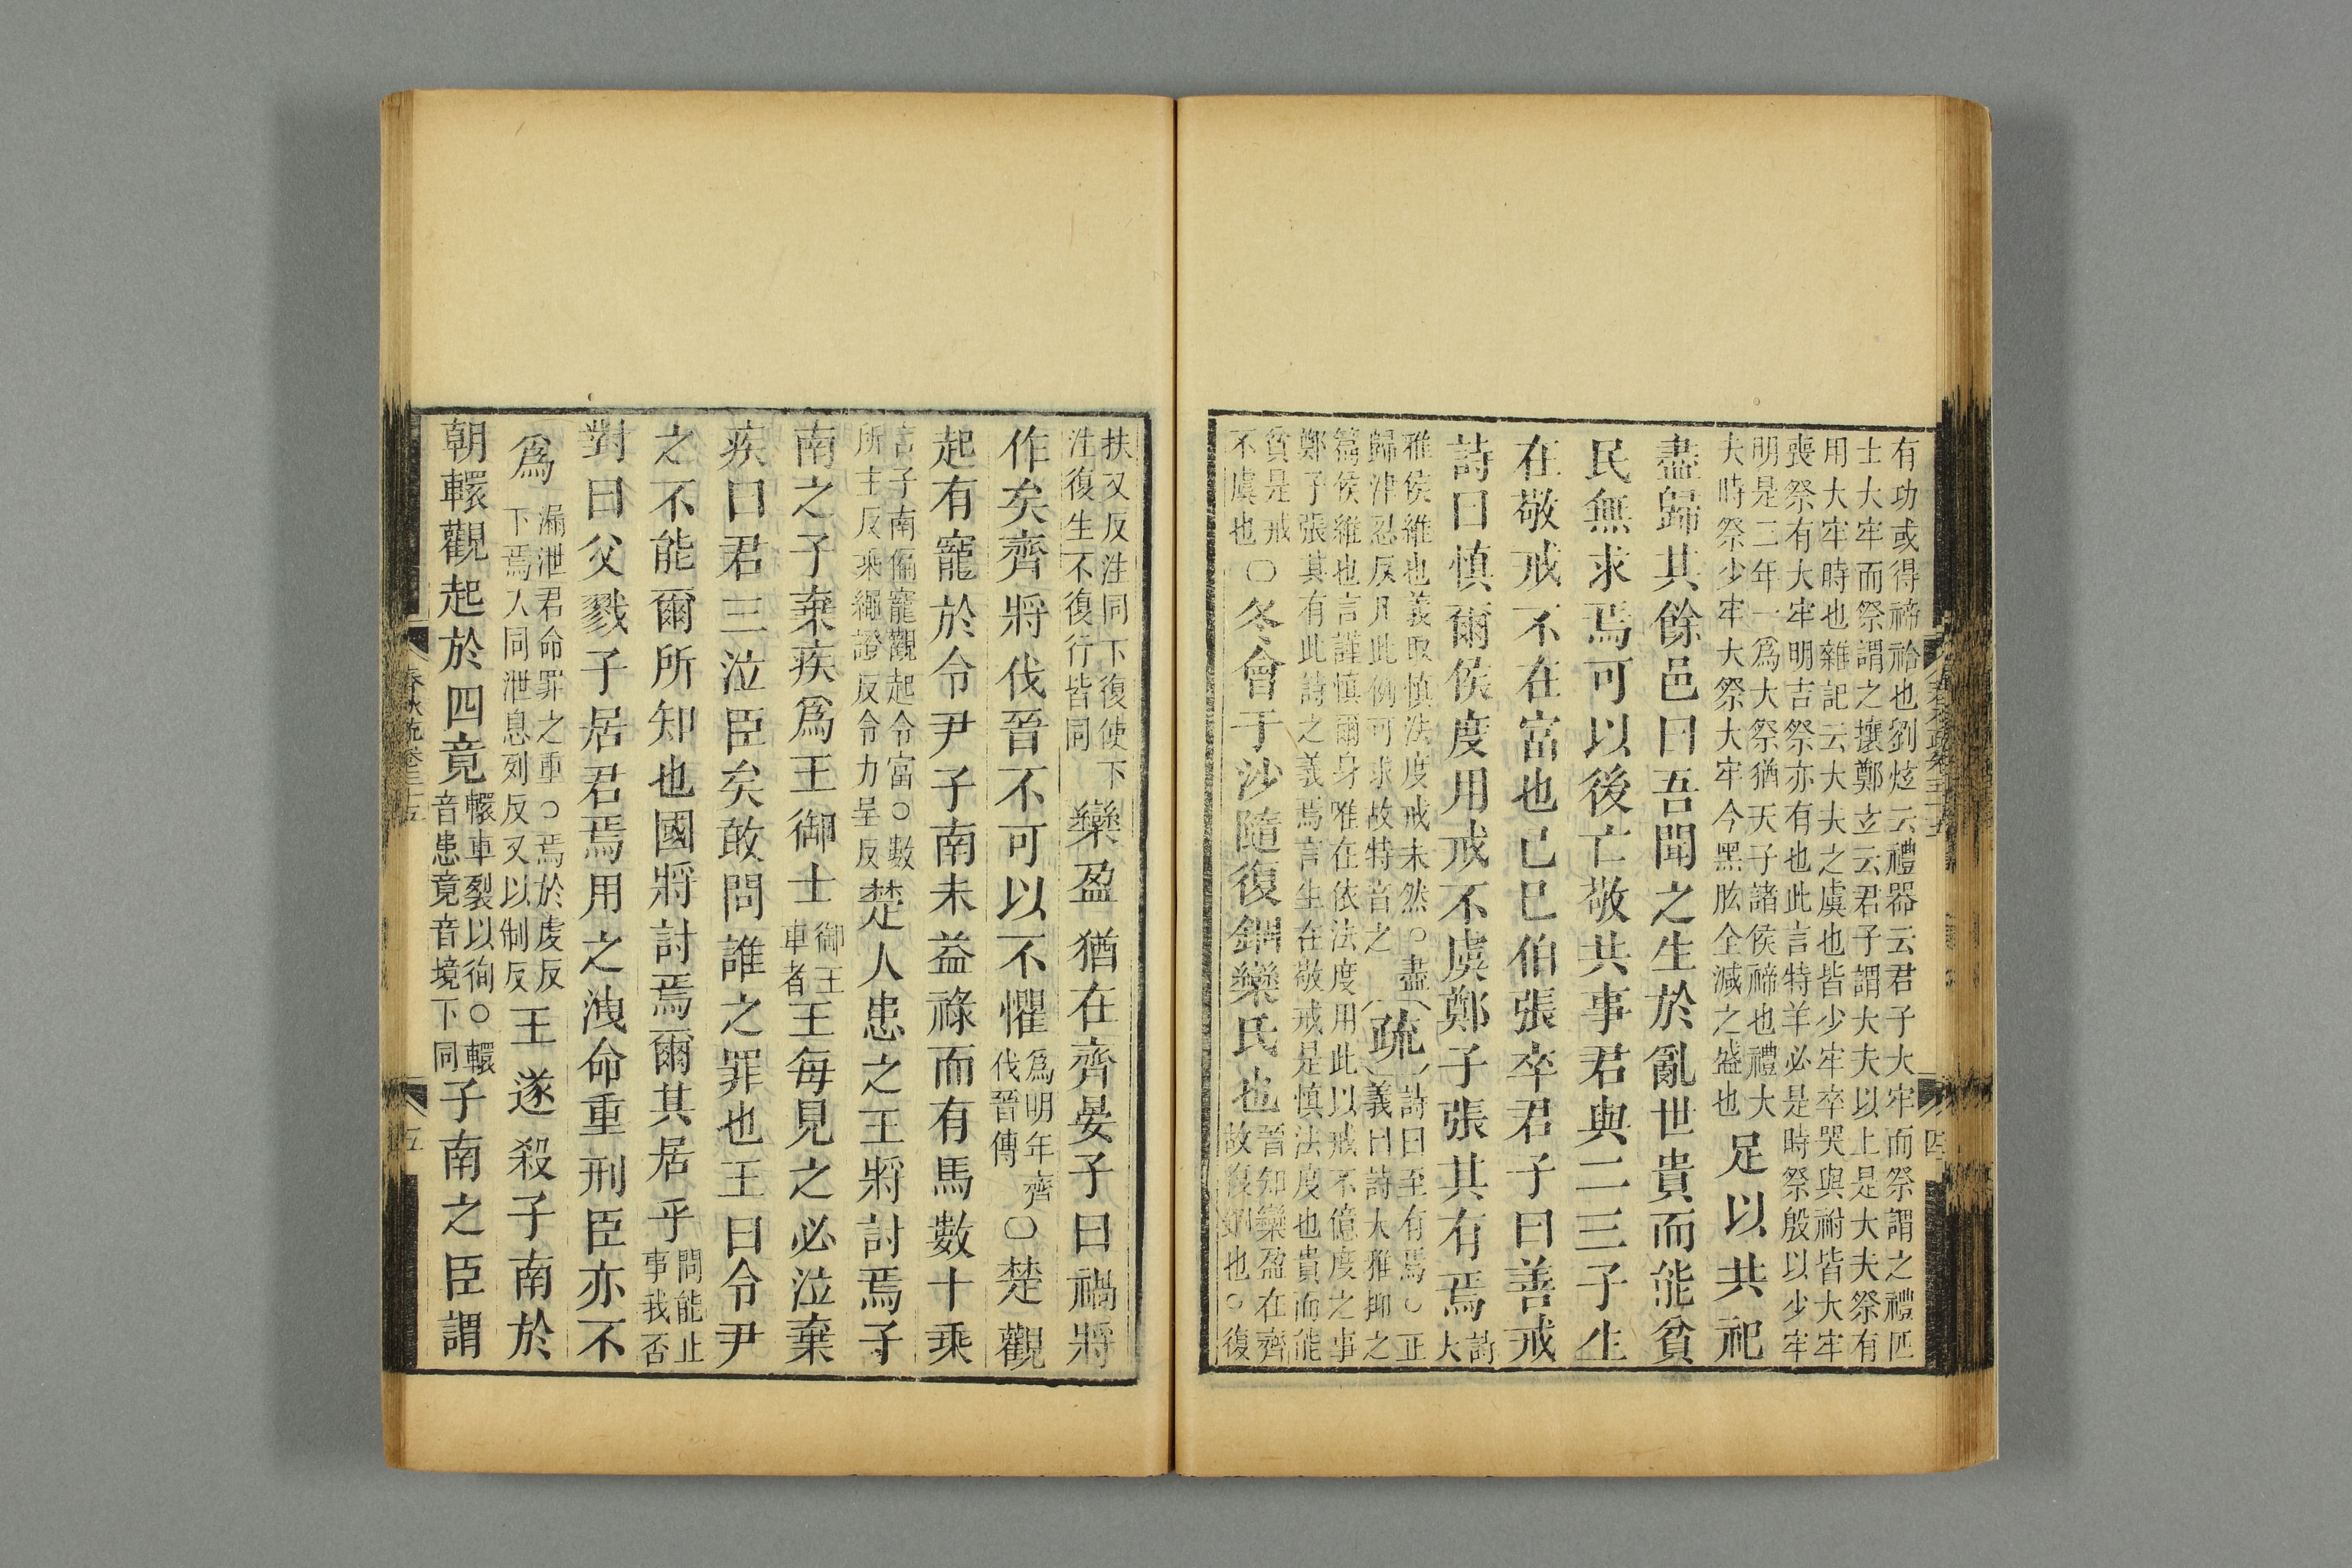 有功或得禘祫也劉炫云禮器云君子大牢而祭謂之禮匹
士大牢而祭謂之攘鄭玄云君子謂大夫以上是大夫祭有
用大牢時也雜記云大夫之虞也皆少牢卒哭與祔皆大牢
喪祭有大牢明吉祭亦有也此言特羊必是時祭殷以少牢
明是二年一爲大祭猶天子諸侯禘也禮大
夫時祭少牢大祭大牢今黑肱全減之盛也
足以共祀
盡歸其餘邑曰吾聞之生於亂世貴而能貧
民無求焉可以後亡敬共事君與二三子生
在敬戒不在富也己巳伯張卒君子曰善戒
詩曰慎爾侯度用戒不虞鄭子張其有焉
詩
大
雅侯維也義取慎法度戒未然○盡
歸津忍反凡此例可求故特音之
疏
詩曰至有焉○正
義曰詩大雅抑之
篇侯維也言謹慎爾身唯在依法度用此以戒不億度之事
鄭子張其有此詩之義焉言生在敬戒是慎法度也貴而能
貧是戒
不虞也
○冬會于沙隨復錮欒氏也
晉知欒盈在齊
故復錮也○復
扶又反注同下復使下
注復生不復行皆同
欒盈猶在齊晏子曰禍將
作矣齊將伐晉不可以不懼
爲明年齊
伐晉傳
○楚觀
起有寵於令尹子南未益祿而有馬數十乘
言子南偏寵觀起令富○數
所主反乘繩證反令力呈反
楚人患之王將討焉子
南之子棄疾爲王御士
御王
車者
王每見之必泣棄
疾曰君三泣臣矣敢問誰之罪也王曰令尹
之不能爾所知也國將討焉爾其居乎
問能止
事我否
對曰父戮子居君焉用之洩命重刑臣亦不
爲
漏泄君命罪之重○焉於虔反
下焉入同泄息列反又以制反
王遂殺子南於
朝轘觀起於四竟
轘車裂以徇○轘
音患竟音境下同
子南之臣謂
春秋疏卷三十五
四
五